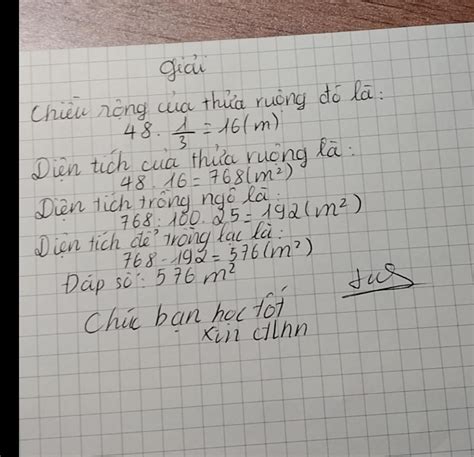 Giải
Chiều rộng của thửa ruộng đó là:
48 . 1/3 = 16 (m)
Diện tích của thửa ruộng là:
48 . 16 = 768 (m²)
Diện tích trồng ngô là:
768 : 100 . 25 = 192 (m²)
Diện tích để trồng lạc là:
768 - 192 = 576 (m²)
Đáp số: 576 m²
Chúc bạn học tốt
xin ctlhn